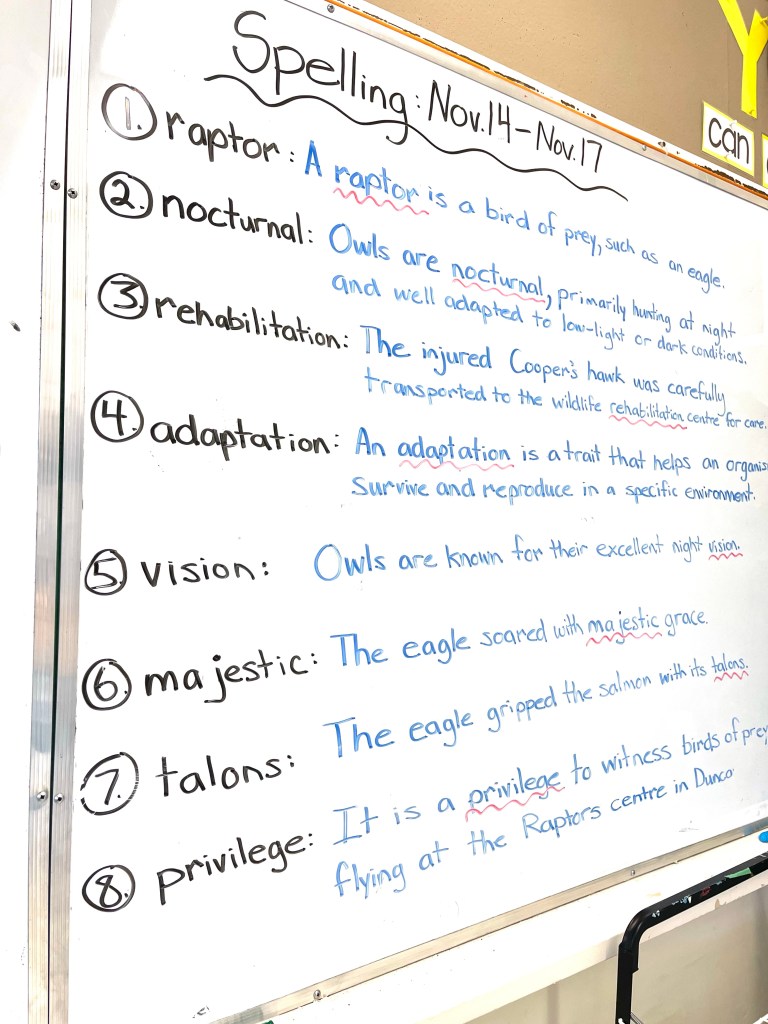 Spelling: Nov. 14 – Nov. 17
1. raptor: A raptor is a bird of prey, such as an eagle.
2. nocturnal: Owls are nocturnal, primarily hunting at night
and well adapted to low-light or dark conditions.
3. rehabilitation: The injured Cooper's hawk was carefully
transported to the wildlife rehabilitation centre for care.
4. adaptation: An adaptation is a trait that helps an organis
survive and reproduce in a specific environment.
5. vision: Owls are known for their excellent night vision.
6. majestic: The eagle soared with majestic grace.
7. talons: The eagle gripped the salmon with its talons.
8. privilege: It is a privilege to witness birds of prey
flying at the Raptors centre in Dunca
Y
can